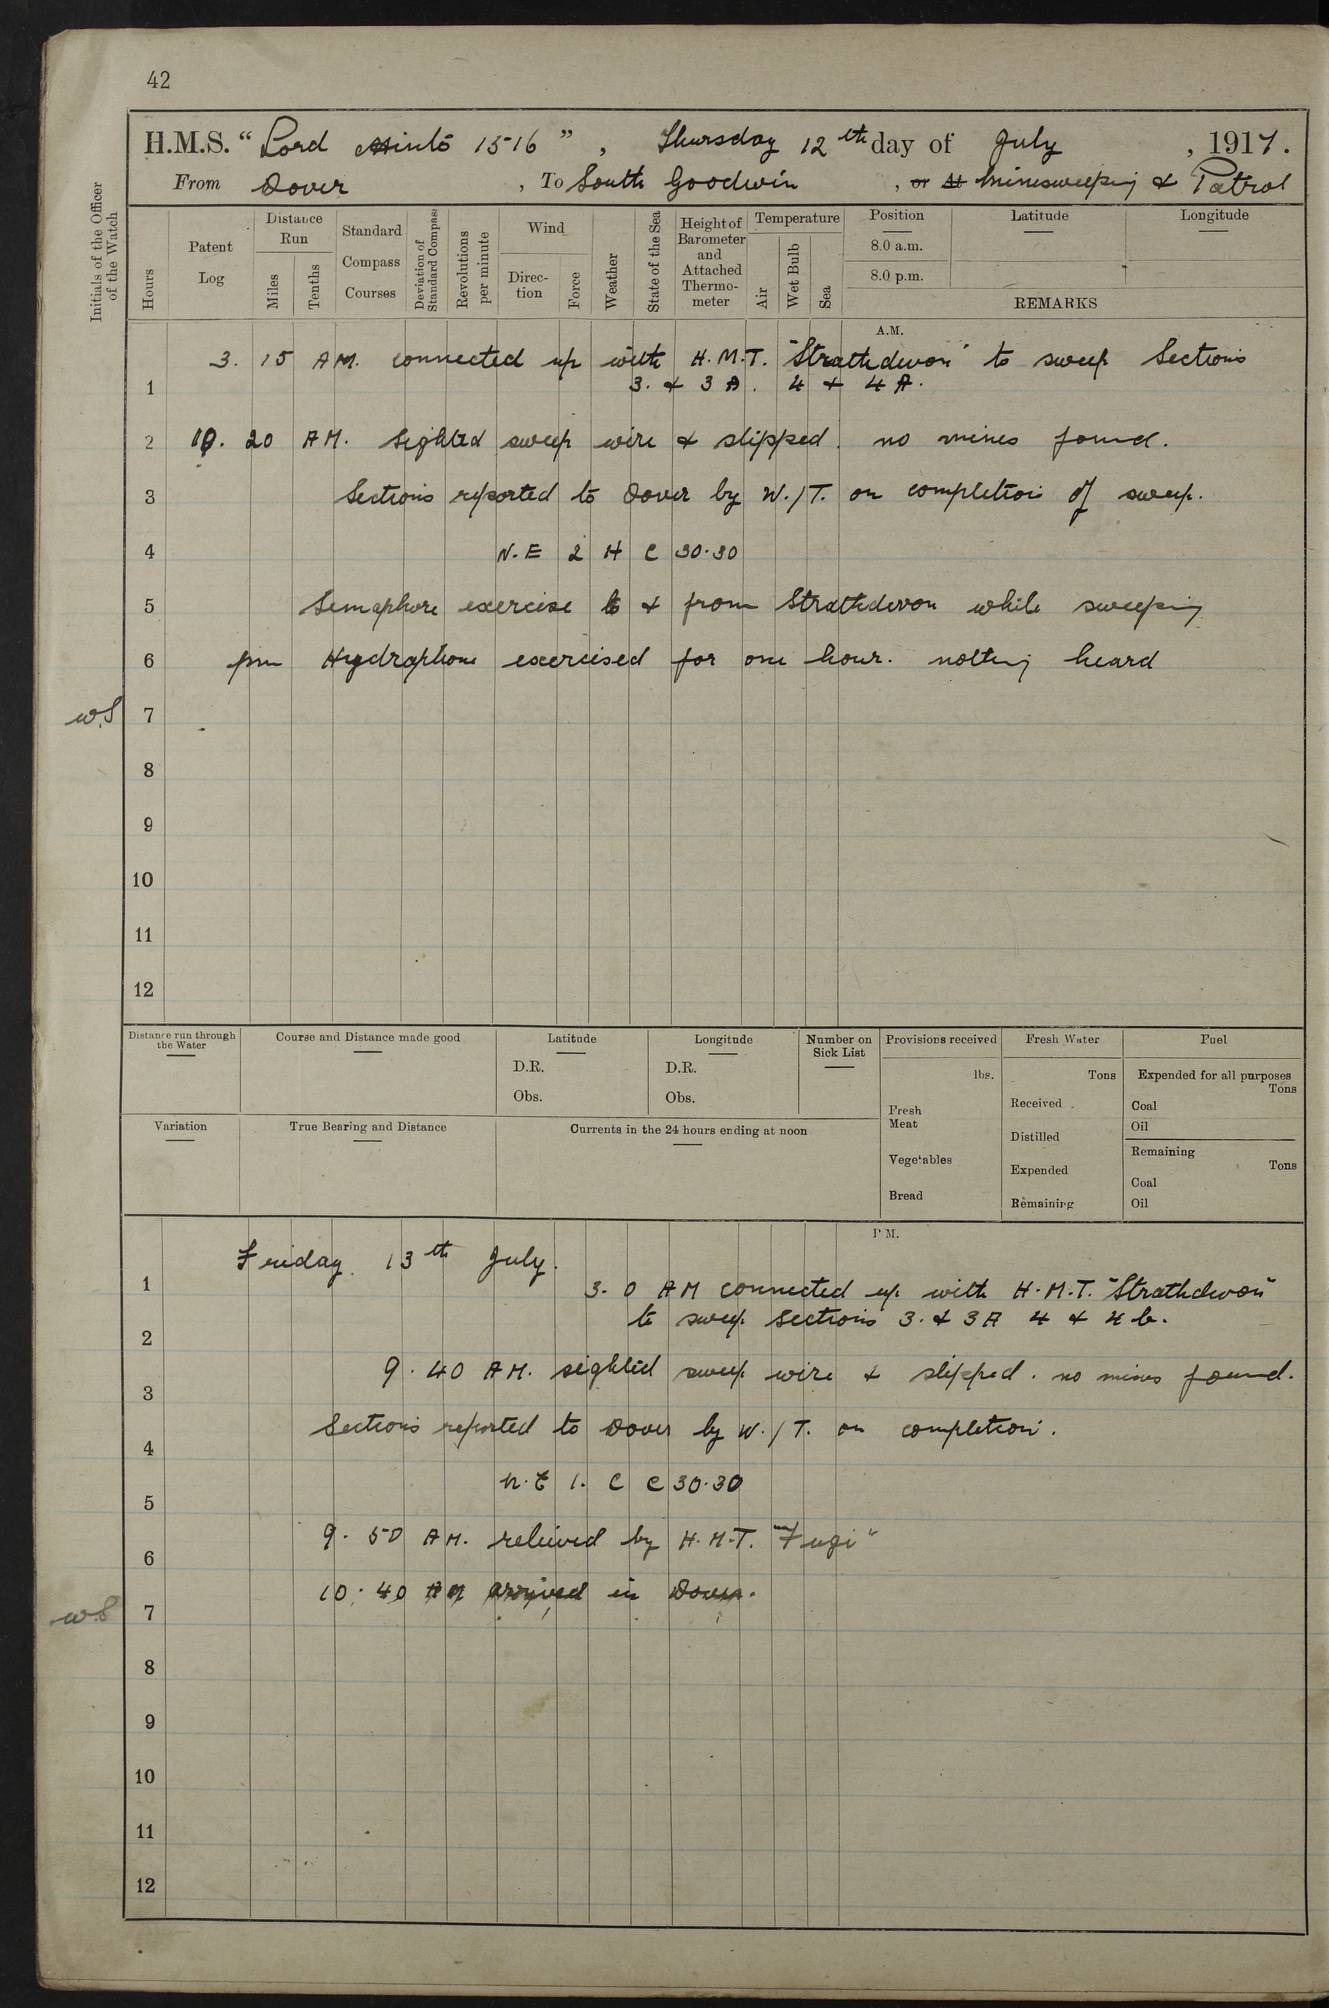 42
H.M.S. “Lord Minto 1516”, Thursday 12th day of July, 1917.
From Dover, To South Goodwin, or At Minesweeping & Patrol
Initials of the Officer of the Watch
Hours
Patent Log
Distance Run
Miles
Tenths
Standard Compass Courses
Deviation of Standard Compass
Revolutions per minute
Wind
Direc-tion
Force
Weather
State of the Sea
Height of Barometer and Attached Thermo-meter
Temperature
Air
Wet Bulb
Sea
Position
8.0 a.m.
8.0 p.m.
Latitude
Longitude
REMARKS
A.M.
3. 15 AM. connected up with H.M.T. "Strathdevon" to sweep Sections
1 3. & 3A. 4 & 4A.
2 10. 20 AM. Sighted sweep wire & slipped. no mines found.
3 Sections reported to Dover by W./T. on completion of sweep.
4 N.E 2 H C 30.30
5 Semaphore exercise to & from Strathdevon while sweeping
6 pm Hydrophone exercised for one hour. nothing heard
w.S 7
8
9
10
11
12
Distance run through the Water
Course and Distance made good
Latitude
D.R.
Obs.
Longitude
D.R.
Obs.
Number on Sick List
Provisions received
lbs.
Fresh Meat
Vegetables
Bread
Fresh Water
Tons
Received
Distilled
Expended
Remaining
Fuel
Expended for all purposes
Tons
Coal
Oil
Remaining
Tons
Coal
Oil
Variation
True Bearing and Distance
Currents in the 24 hours ending at noon
P.M.
Friday. 13th July.
1 3. 0 AM connected up with H.M.T. "Strathdevon"
to sweep Sections 3. & 3A 4 & 4 b.
2
9. 40 AM. sighted sweep wire & slipped. no mines found.
3
Sections reported to Dover by W./T. on completion.
4
N.E 1. C C 30.30
5
9. 50 AM. relieved by H.M.T. "Fugi"
6
10. 40 AM arrived in Dover.
w.S 7
8
9
10
11
12